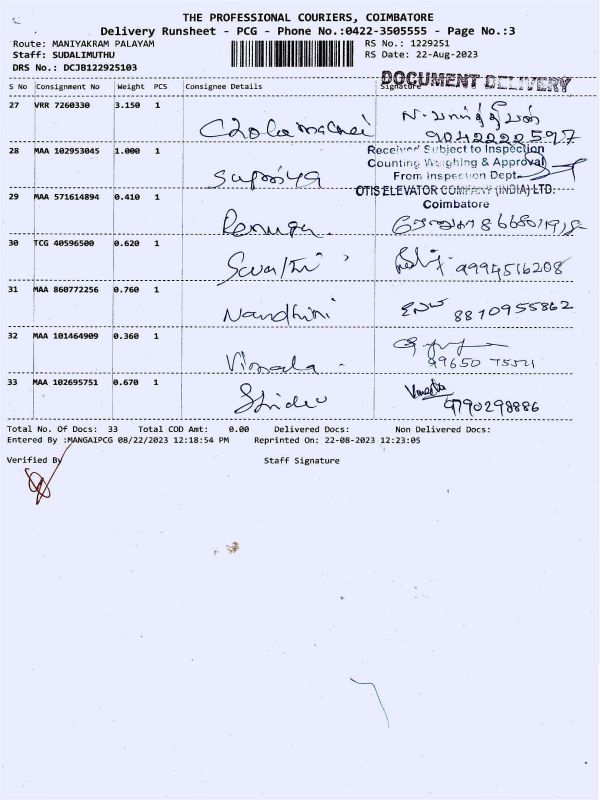 THE PROFESSIONAL COURIERS, COIMBATORE
Delivery Runsheet - PCG - Phone No.:0422-3505555 - Page No.:3
Route: MANIYAKRAM PALAYAM RS No.: 1229251
Staff: SUDALIMUTHU RS Date: 22-Aug-2023
DRS No.: DCJB122925103
DOCUMENT DELIVERY
S No Consignment No Weight PCS Consignee Details Signature
27 VRR 7260330 3.150 1
9042222597
28 MAA 102953045 1.000 1 Supriya
Received Subject to Inspection
Counting Weighing & Approval
From Inspection Dept.
OTIS ELEVATOR COMPANY (INDIA) LTD.
Coimbatore
29 MAA 571614894 0.410 1 Renuga.
30 TCG 40596500 0.620 1 Swathi 9994516208
31 MAA 860772256 0.760 1 Nandhini 8870955862
32 MAA 101464909 0.360 1 Vimala
33 MAA 102695751 0.670 1 9790298886
Total No. Of Docs: 33 Total COD Amt: 0.00 Delivered Docs: Non Delivered Docs:
Entered By :MANGAIPCG 08/22/2023 12:18:54 PM Reprinted On: 22-08-2023 12:23:05
Verified By Staff Signature